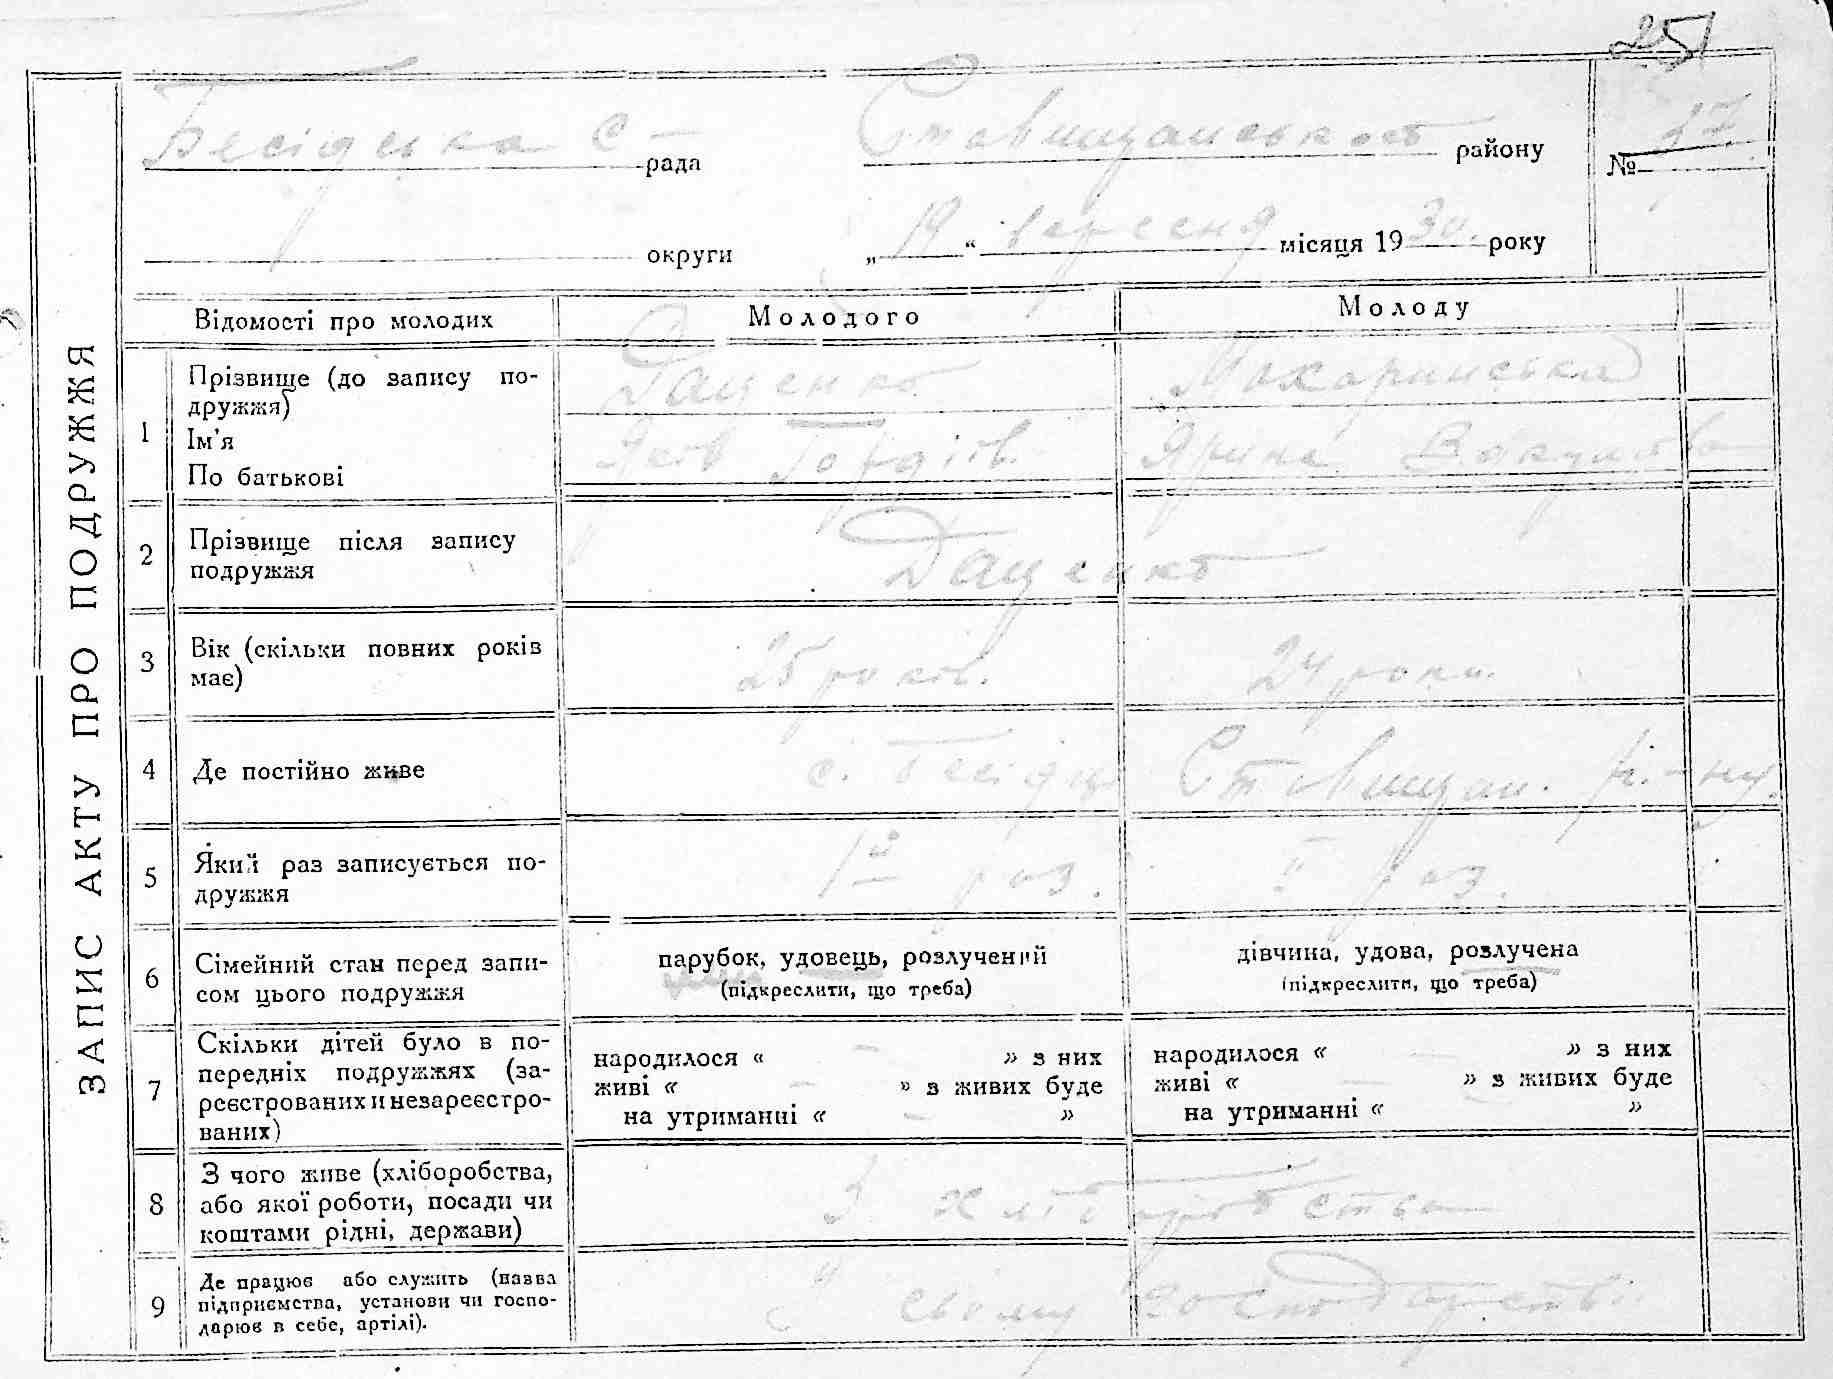 251
ЗАПИС АКТУ ПРО ПОДРУЖЖЯ
Бесідська С - рада Ставищанського району № 27
округи „19“ вересня місяця 1930. року
Відомості про молодих Молодого Молоду
1 Прізвище (до запису по-
дружжя) Даценко Махаринська
Ім'я
По батькові Яків Гордіїв. Ярина Вакулівна
2 Прізвище після запису
подружжя Даценко
3 Вік (скільки повних років
має) 25 років. 24 роки.
4 Де постійно живе с. Бесідці Ставищан. р.-ну.
5 Який раз записується по-
дружжя 1й раз. II раз.
6 Сімейний стан перед запи-
сом цього подружжя
парубок, удовець, розлучений
(підкреслити, що треба)
дівчина, удова, розлучена
(підкреслити, що треба)
7 Скільки дітей було в по-
передніх подружжях (за-
реєстрованих и незареєстро-
ваних)
народилося « — » з них
живі « — » з живих буде
на утриманні « — »
народилося « — » з них
живі « — » з живих буде
на утриманні « — »
8 З чого живе (хліборобства,
або якої роботи, посади чи
коштами рідні, держави) З хліборобства
9 Де працює або служить (назва
підприємства, установи чи госпо-
дарює в себе, артілі). У свому господарстві.